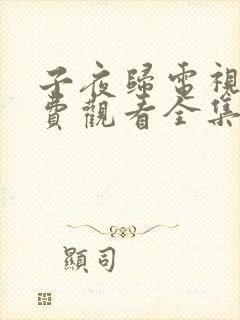 子夜歸電視
費觀看全集
顯司